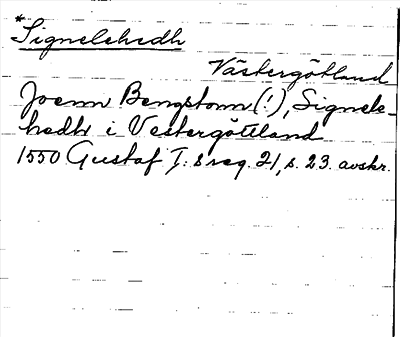 *Signelehedh
Västergötland
Joenn Bengtsonn (!), Signele-
hedh i Vestergöttland
1550 Gustaf I:s reg. 21, s. 23. avskr.